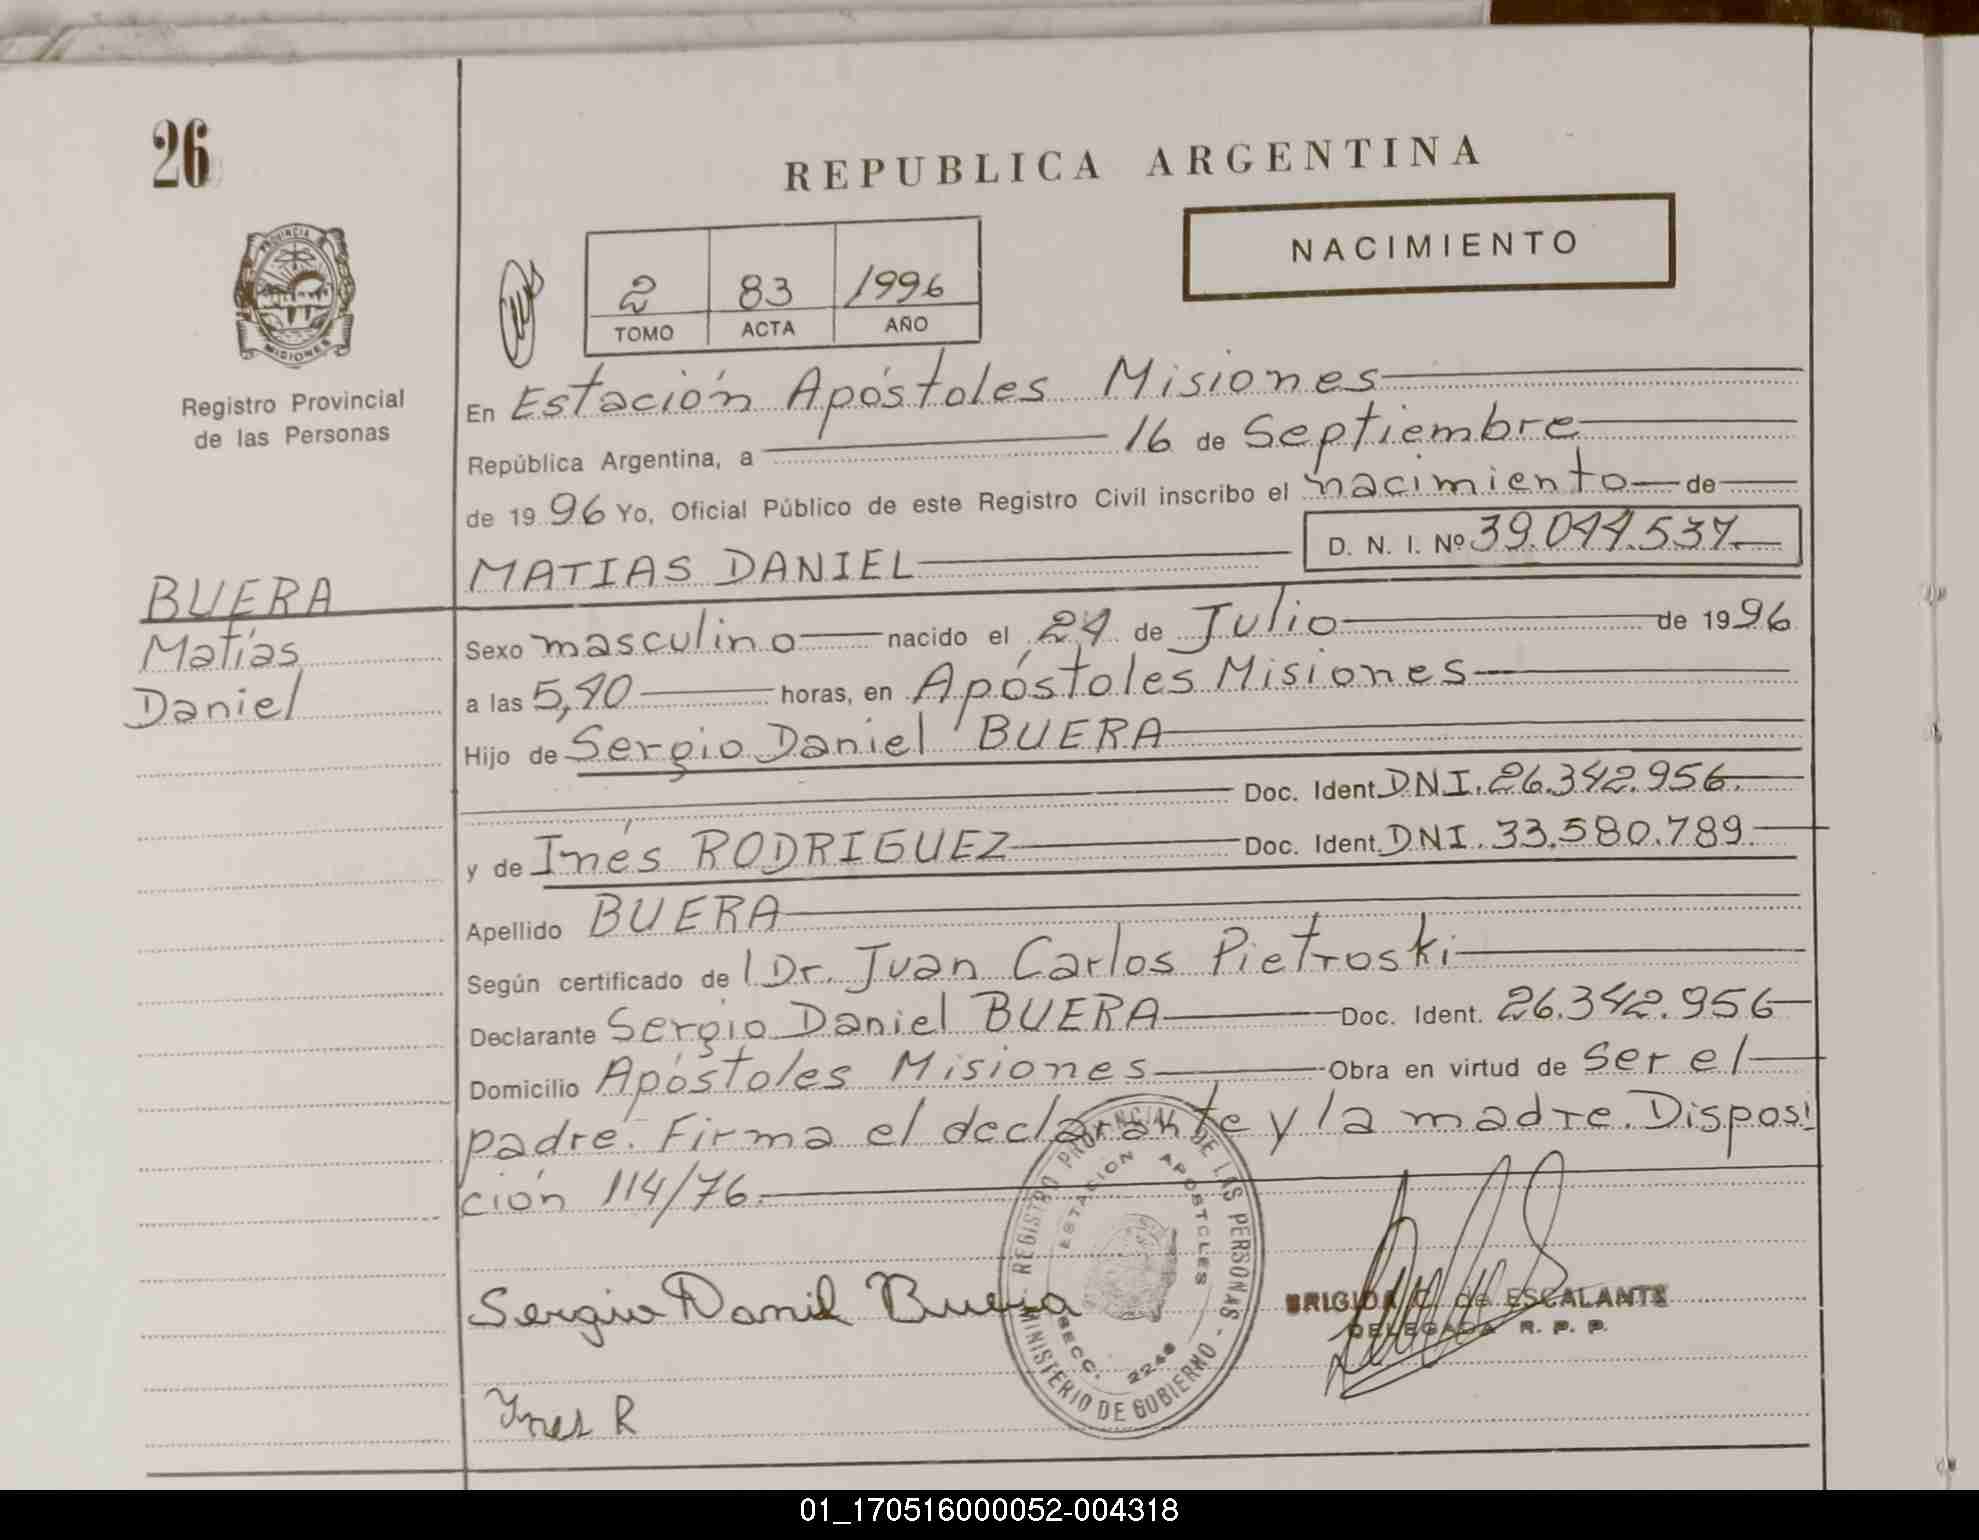 26
REPUBLICA ARGENTINA
NACIMIENTO
PROVINCIA
MISIONES
2 83 1996
TOMO ACTA AÑO
Registro Provincial
de las Personas
En Estación Apóstoles Misiones
República Argentina, a 16 de Septiembre
de 1996 Yo, Oficial Público de este Registro Civil inscribo el nacimiento de
MATIAS DANIEL D. N. I. Nº 39.044.537
BUERA
Matías
Daniel
Sexo masculino nacido el 24 de Julio de 1996
a las 5,40 horas, en Apóstoles Misiones
Hijo de Sergio Daniel BUERA
Doc. Ident. DNI. 26.342.956.
y de Inés RODRIGUEZ Doc. Ident. DNI. 33.580.789.
Apellido BUERA
Según certificado del Dr. Juan Carlos Pietroski
Declarante Sergio Daniel BUERA Doc. Ident. 26.342.956
Domicilio Apóstoles Misiones Obra en virtud de ser el
padre. Firma el declarante y la madre. Disposi
ción 114/76.
REGISTRO PROVINCIAL DE LAS PERSONAS - MINISTERIO DE GOBIERNO -
ESTACION APOSTOLES
SECC. 2248
Sergio Daniel Buera
BRIGIDA C. de ESCALANTE
DELEGADA R. P. P.
Ines R
01_170516000052-004318